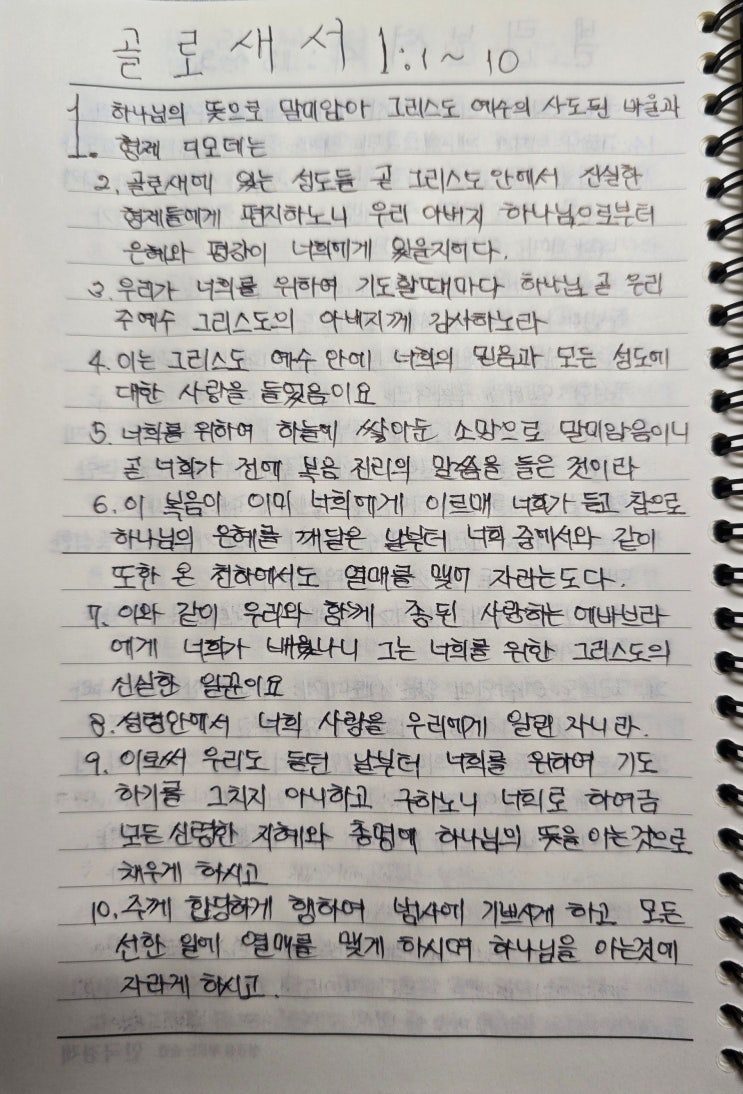 골로새서 1:1~10
1. 하나님의 뜻으로 말미암아 그리스도 예수의 사도된 바울과
형제 디모데는
2. 골로새에 있는 성도들 곧 그리스도 안에서 신실한
형제들에게 편지하노니 우리 아버지 하나님으로부터
은혜와 평강이 너희에게 있을지어다.
3. 우리가 너희를 위하여 기도할때마다 하나님 곧 우리
주예수 그리스도의 아버지께 감사하노라
4. 이는 그리스도 예수 안에 너희의 믿음과 모든 성도에
대한 사랑을 들었음이요
5. 너희를 위하여 하늘에 쌓아둔 소망으로 말미암음이니
곧 너희가 전에 복음 진리의 말씀을 들은 것이라
6. 이 복음이 이미 너희에게 이르매 너희가 듣고 참으로
하나님의 은혜를 깨달은 날부터 너희 중에서와 같이
또한 온 천하에서도 열매를 맺어 자라는도다.
7. 이와 같이 우리와 함께 종된 사랑하는 에바브라
에게 너희가 배웠나니 그는 너희를 위한 그리스도의
신실한 일꾼이요
8. 성령안에서 너희 사랑을 우리에게 알린 자니라.
9. 이로써 우리도 듣던 날부터 너희를 위하여 기도
하기를 그치지 아니하고 구하노니 너희로 하여금
모든 신령한 지혜와 총명에 하나님의 뜻을 아는것으로
채우게 하시고
10. 주께 합당하게 행하여 범사에 기쁘시게 하고 모든
선한 일에 열매를 맺게 하시며 하나님을 아는것에
자라게 하시고.